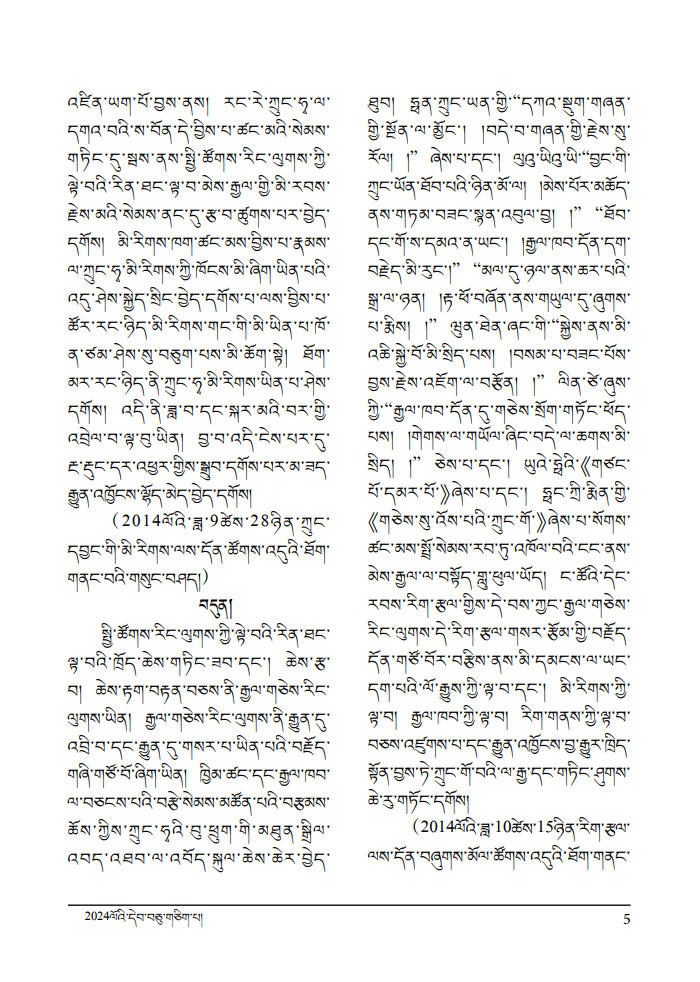 འཛིན་ཡག་པོ་བྱས་ནས། རང་རེ་ཀྲུང་ཧྭ་ལ་
དགའ་བའི་ས་བོན་དེ་བྱིས་པ་ཚང་མའི་སེམས་
གཏིང་དུ་སྦས་ནས་སྤྱི་ཚོགས་རིང་ལུགས་ཀྱི་
ལྟེ་བའི་རིན་ཐང་ལྟ་བ་མེས་རྒྱལ་གྱི་མི་རབས་
རྗེས་མའི་སེམས་ནང་དུ་རྩ་བ་ཚུགས་པར་བྱེད་
དགོས། མི་རིགས་ཁག་ཚང་མས་བྱིས་པ་རྣམས་
ལ་ཀྲུང་ཧྭ་མི་རིགས་ཀྱི་ཁོངས་མི་ཞིག་ཡིན་པའི་
འདུ་ཤེས་སྐྱེད་སྲིང་བྱེད་དགོས་པ་ལས་བྱིས་པ་
ཚོར་རང་ཉིད་མི་རིགས་གང་གི་མི་ཡིན་པ་ཁོ་
ན་ཙམ་ཤེས་སུ་བཅུག་པས་མི་ཆོག་སྟེ། ཐོག་
མར་རང་ཉིད་ནི་ཀྲུང་ཧྭ་མི་རིགས་ཡིན་པ་ཤེས་
དགོས། འདི་ནི་ཟླ་བ་དང་སྐར་མའི་བར་གྱི་
འབྲེལ་བ་ལྟ་བུ་ཡིན། བྱ་བ་འདི་ངེས་པར་དུ་
རྔ་རྡུང་དར་འཕྱར་གྱིས་སྒྲུབ་དགོས་པར་མ་ཟད་
རྒྱུན་འཁྱོངས་ལྷོད་མེད་བྱེད་དགོས།
(2014ལོའི་ཟླ་9ཚེས་28ཉིན་ཀྲུང་
དབྱང་གི་མི་རིགས་ལས་དོན་ཚོགས་འདུའི་ཐོག་
གནང་བའི་གསུང་བཤད།)
བདུན།
སྤྱི་ཚོགས་རིང་ལུགས་ཀྱི་ལྟེ་བའི་རིན་ཐང་
ལྟ་བའི་ཁྲོད་ཆེས་གཏིང་ཟབ་དང་། ཆེས་རྩ་
བ། ཆེས་རྟག་བརྟན་བཅས་ནི་རྒྱལ་གཅེས་རིང་
ལུགས་ཡིན། རྒྱལ་གཅེས་རིང་ལུགས་ནི་རྒྱུན་དུ་
འབྲི་བ་དང་རྒྱུན་དུ་གསར་པ་ཡིན་པའི་བརྗོད་
གཞི་གཙོ་བོ་ཞིག་ཡིན། ཁྱིམ་ཚང་དང་རྒྱལ་ཁབ་
ལ་བཅངས་པའི་བརྩེ་སེམས་མཚོན་པའི་བརྩམས་
ཆོས་ཀྱིས་ཀྲུང་ཧྭའི་བུ་ཕྲུག་གི་མཐུན་སྒྲིལ་
འབད་འཐབ་ལ་འབོད་སྐུལ་ཆེས་ཆེར་བྱེད་
ཐུབ། ཧྥན་ཀྲུང་ཡན་གྱི་“དཀའ་སྡུག་གཞན་
གྱི་སྔོན་ལ་མྱོང་། །བདེ་བ་གཞན་གྱི་རྗེས་སུ་
རོལ། །” ཞེས་པ་དང་། ལུའུ་ཡིའུ་ཡི་“བྱང་གི་
ཀྲུང་ཡོན་ཐོབ་པའི་ཉིན་མོ་ལ། །མེས་པོར་མཆོད་
ནས་གཏམ་བཟང་སྙན་འབུལ་བྱ། །” “ཐོབ་
དང་གོ་ས་དམའ་ན་ཡང་། །རྒྱལ་ཁབ་དོན་དག་
བརྗེད་མི་རུང་།” “མལ་དུ་ཉལ་ནས་ཆར་པའི་
སྒྲ་ལ་ཉན། །རྟ་ཕོ་བཞོན་ནས་གཡུལ་དུ་ཞུགས་
པ་རྨིས། །” ཝུན་ཐེན་ཞང་གི་“སྐྱེས་ནས་མི་
འཆི་སྐྱེ་བོ་མི་སྲིད་པས། །བསམ་པ་བཟང་པོས་
བྱས་རྗེས་འཇོག་ལ་བརྩོན། །” ལིན་ཙེ་ཞུས་
ཀྱི་“རྒྱལ་ཁབ་དོན་དུ་གཅེས་སྲོག་གཏོང་ཕོད་
པས། །གེགས་ལ་གཡོལ་ཞིང་བདེ་ལ་ཆགས་མི་
སྲིད། །” ཅེས་པ་དང་། ཡུའེ་ཧྥེའི་《གཙང་
པོ་དམར་པོ་》ཞེས་པ་དང་། ཧྥང་ཀྲི་རྨིན་གྱི་
《གཅེས་སུ་འོས་པའི་ཀྲུང་གོ་》ཞེས་པ་སོགས་
ཚང་མས་སྤྲོ་སེམས་རབ་ཏུ་འཁོལ་བའི་ངང་ནས་
མེས་རྒྱལ་ལ་བསྟོད་གླུ་ཕུལ་ཡོད། ང་ཚོའི་དེང་
རབས་རིག་རྩལ་གྱིས་དེ་བས་ཀྱང་རྒྱལ་གཅེས་
རིང་ལུགས་དེ་རིག་རྩལ་གསར་རྩོམ་གྱི་བརྗོད་
དོན་གཙོ་བོར་བརྩིས་ནས་མི་དམངས་ལ་ཡང་
དག་པའི་ལོ་རྒྱུས་ཀྱི་ལྟ་བ་དང་། མི་རིགས་ཀྱི་
ལྟ་བ། རྒྱལ་ཁབ་ཀྱི་ལྟ་བ། རིག་གནས་ཀྱི་ལྟ་བ་
བཅས་འཛུགས་པ་དང་རྒྱུན་འཁྱོངས་བྱ་རྒྱུར་ཁྲིད་
སྟོན་བྱས་ཏེ་ཀྲུང་གོ་བའི་ལ་རྒྱ་དང་གཏིང་ཤུགས་
ཆེ་རུ་གཏོང་དགོས།
(2014ལོའི་ཟླ་10ཚེས་15ཉིན་རིག་རྩལ་
ལས་དོན་བཞུགས་མོལ་ཚོགས་འདུའི་ཐོག་གནང་
2024ལོའི་དེབ་བཅུ་གཅིག་པ།
5